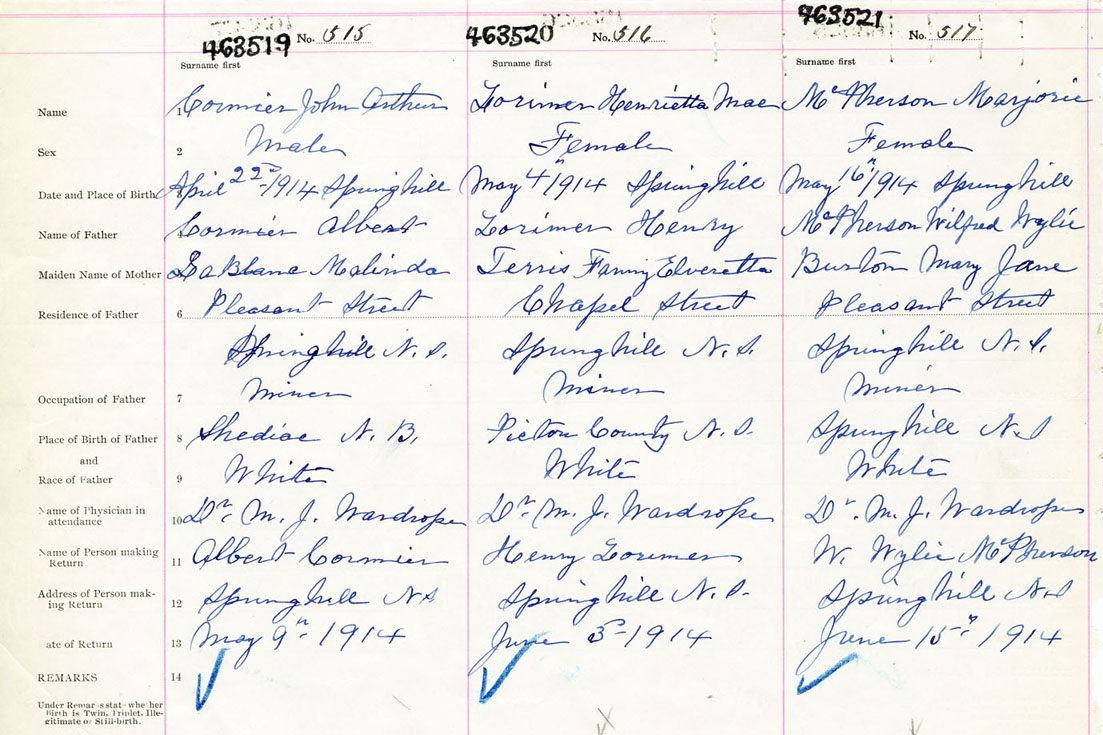 463519 No. 515 463520 No. 516 463521 No. 517
Surname first Surname first Surname first
Name 1 Cormier John Arthur Lorimer Henrietta Mae McPherson Marjorie
Sex 2 Male Female Female
Date and Place of Birth April 22nd 1914 Springhill May 4th 1914 Springhill May 16th 1914 Springhill
Name of Father 4 Cormier Albert Lorimer Henry McPherson Wilfred Wylie
Maiden Name of Mother LaBlanc Malinda Terris Fanny Elveretta Burton Mary Jane
Residence of Father 6 Pleasant Street Chapel Street Pleasant Street
Springhill N.S. Springhill N.S. Springhill N.S.
Occupation of Father 7 Miner Miner Miner
Place of Birth of Father 8 Shediac N.B. Pictou County N.S. Springhill N.S
and
Race of Father 9 White White White
Name of Physician in
attendance 10 Dr. M. J. Wardrope Dr. M. J. Wardrope Dr. M. J. Wardrope
Name of Person making
Return 11 Albert Cormier Henry Lorimer W. Wylie McPherson
Address of Person mak-
ing Return 12 Springhill N.S Springhill N.S. Springhill N.S
ate of Return 13 May 9th 1914 June 1914 June 15th 1914
REMARKS 14
Under Remarks state whether
Birth is Twin, Triplet, Ille-
gitimate or Still-birth.